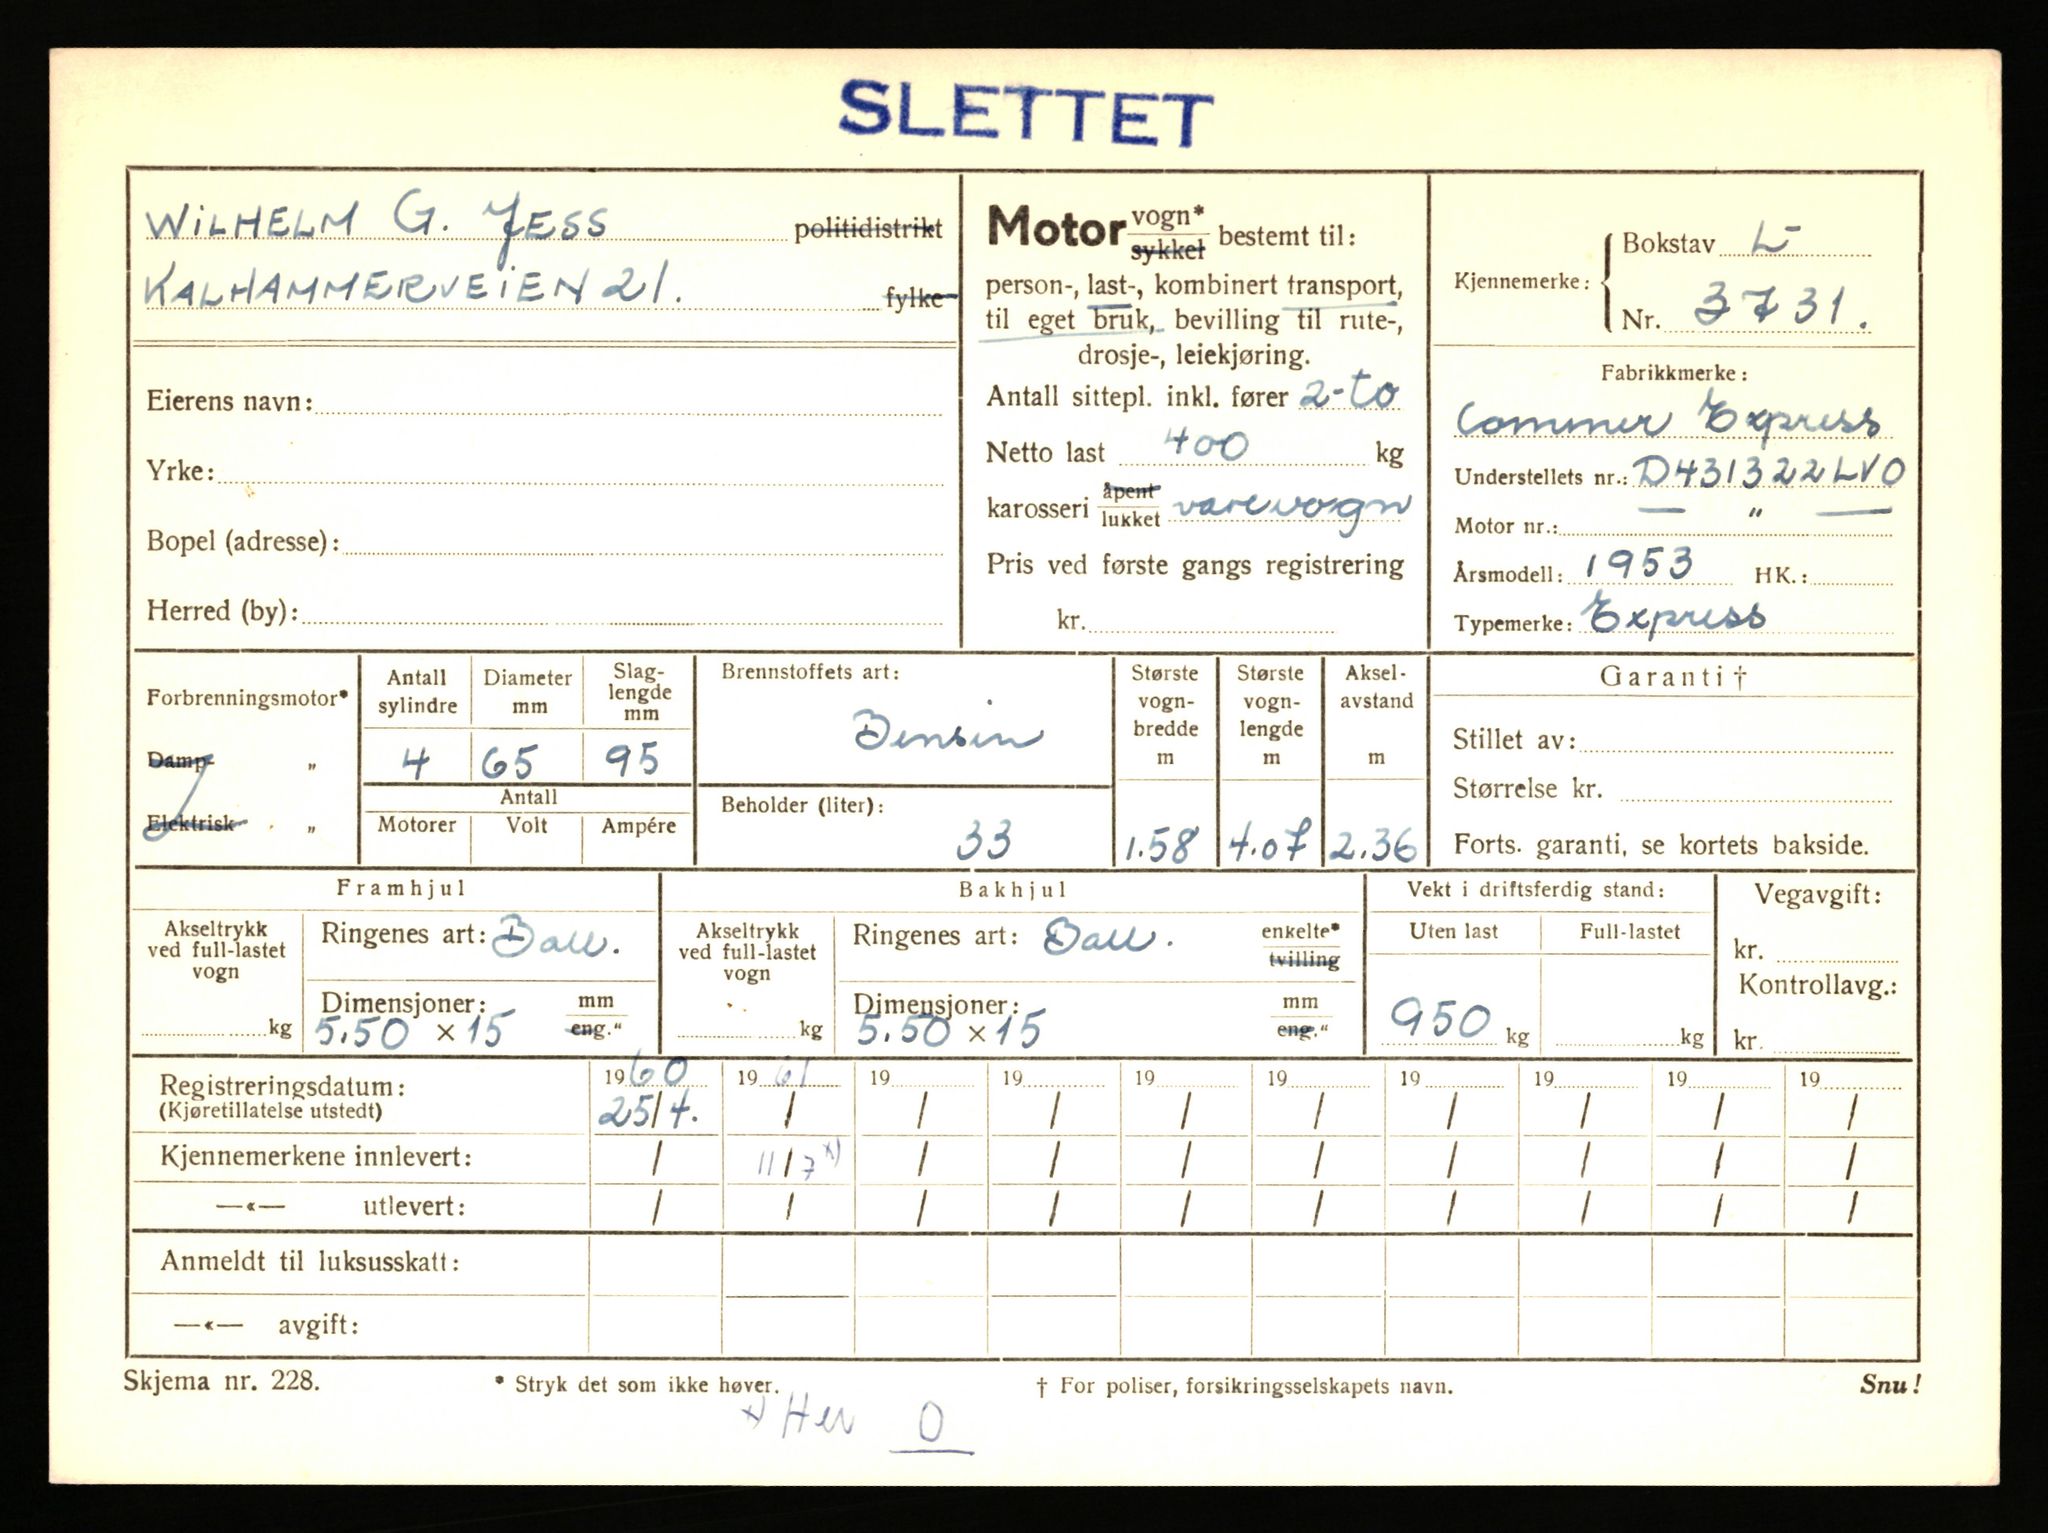 SLETTET
WILHELM G. JESS politidistrikt
KALHAMMERVEIEN 21. fylke
Eierens navn:
Yrke:
Bopel (adresse):
Herred (by):
Motor vogn* sykkel bestemt til:
person-, last-, kombinert transport,
til eget bruk, bevilling til rute-,
drosje-, leiekjøring.
Antall sittepl. inkl. fører 2-to
Netto last 400 kg
karosseri åpent lukket varevogn
Pris ved første gangs registrering
kr.
Kjennemerke: Bokstav L-
Nr. 3731.
Fabrikkmerke:
Commer Express
Understellets nr.: D431322LVO
Motor nr.: — " —
Årsmodell: 1953 HK.:
Typemerke: Express
Forbrenningsmotor*
Damp- "
Elektrisk "
Antall sylindre
Diameter mm
Slag-
lengde
mm
4 65 95
Antall
Motorer Volt Ampére
Brennstoffets art:
Bensin
Beholder (liter):
33
Største
vogn-
bredde
m
1.58
Største
vogn-
lengde
m
4.07
Aksel-
avstand
m
2.36
Garanti †
Stillet av:
Størrelse kr.
Forts. garanti, se kortets bakside.
Framhjul
Akseltrykk
ved full-lastet
vogn
kg
Ringenes art: Ball.
Dimensjoner: mm
5.50 × 15 eng."
Bakhjul
Akseltrykk
ved full-lastet
vogn
kg
Ringenes art: Ball. enkelte*
tvilling
Dimensjoner: mm
5.50 × 15 eng."
Vekt i driftsferdig stand:
Uten last Full-lastet
950 kg kg
Vegavgift:
kr.
Kontrollavg.:
kr.
Registreringsdatum: 1960 1961 19 19 19 19 19 19 19 19
(Kjøretillatelse utstedt) 25/4. / / / / / / / / /
Kjennemerkene innlevert: / 11/7 x) / / / / / / / /
—«— utlevert: / / / / / / / / / /
Anmeldt til luksusskatt:
—«— avgift:
Skjema nr. 228. * Stryk det som ikke høver. † For poliser, forsikringsselskapets navn. Snu!
x) Her O